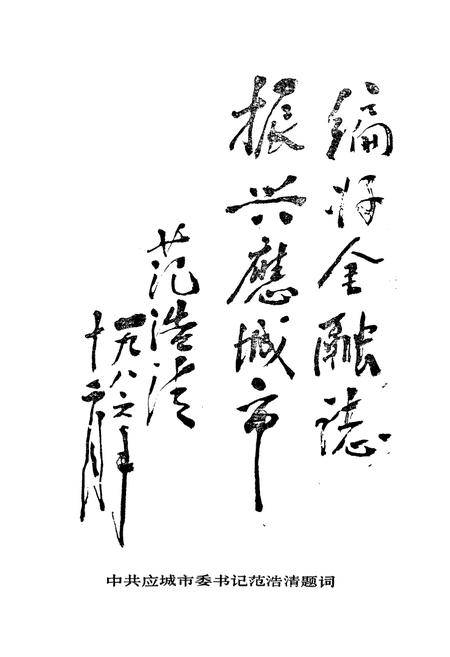 编好金融誌
振兴應城市
范浩清
一九八六年
十二月
中共应城市委书记范浩清题词